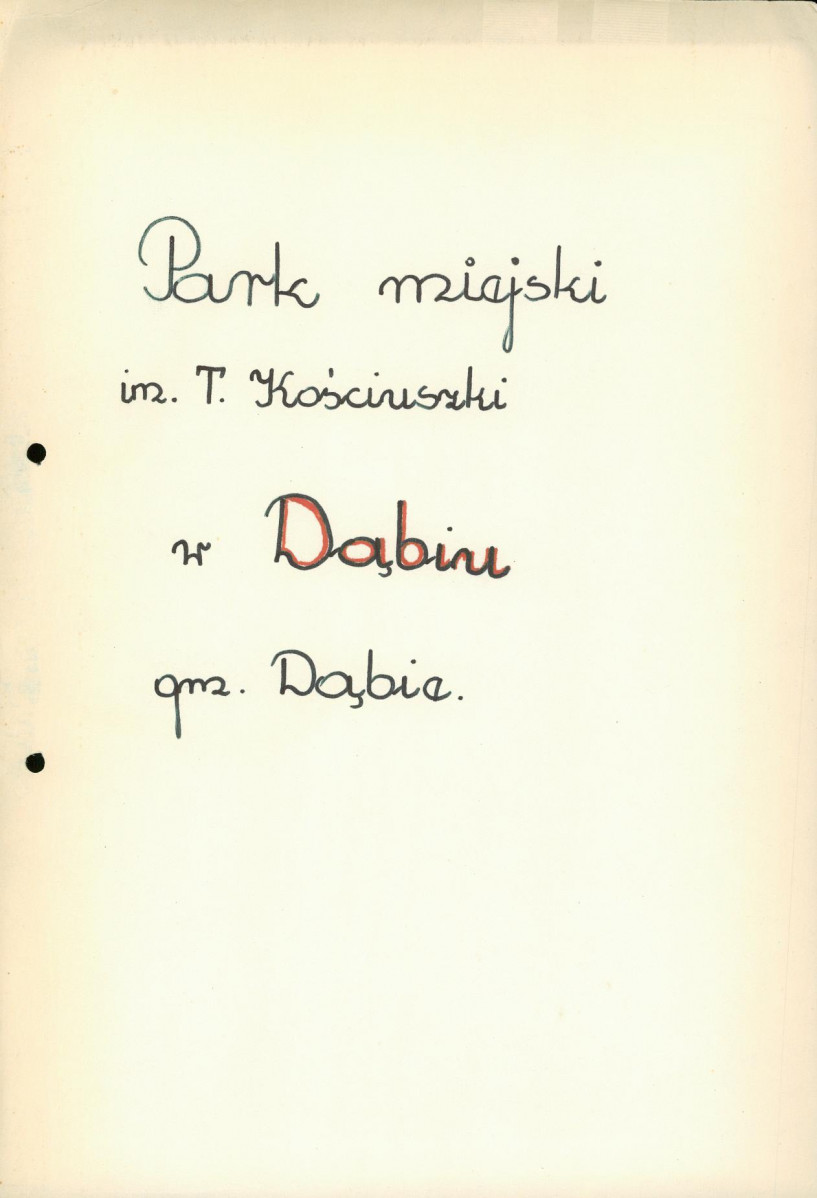 Park miejski
im. T. Kościuszki
w Dąbiu
gm. Dąbie.